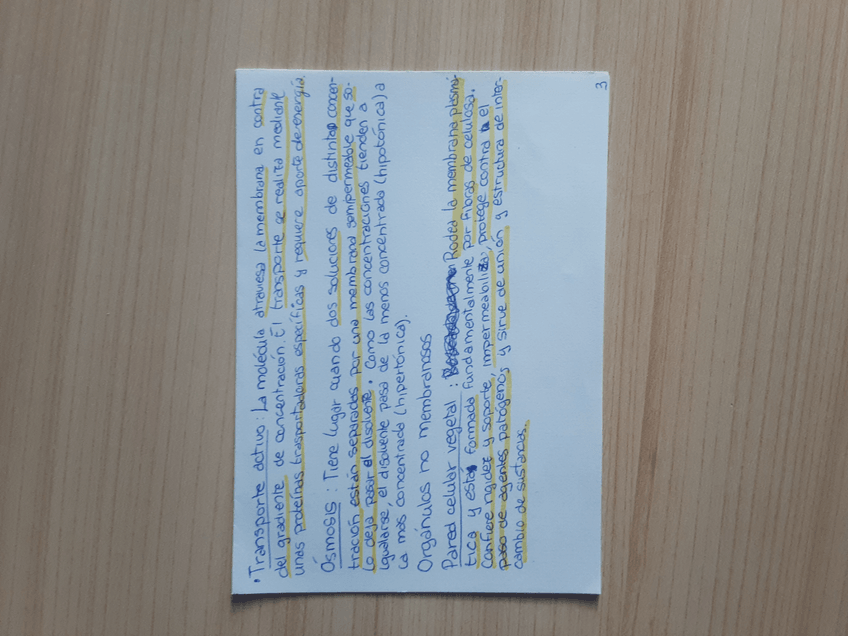 • Transporte activo: La molécula atraviesa la membrana en contra
del gradiente de concentración. El transporte se realiza mediante
unas proteínas trasportadoras específicas y requiere aporte de energía.
Ósmosis: Tiene lugar cuando dos soluciones de distinta concen-
tración están separadas por una membrana semipermeable que so-
lo deja pasar el disolvente. Como las concentraciones tienden a
igualarse, el disolvente pasa de la menos concentrada (hipotónica) a
la mas concentrada (hipertónica).
Orgánulos no membranosos
Pared celular vegetal: Rodea la membrana plasmá-
tica y está formada fundamentalmente por fibras de celulosa.
Confiere rigidez y soporte, impermeabiliza, protege contra el
paso de agentes patógenos y sirve de unión y estructura de inter-
cambio de sustancias.
3